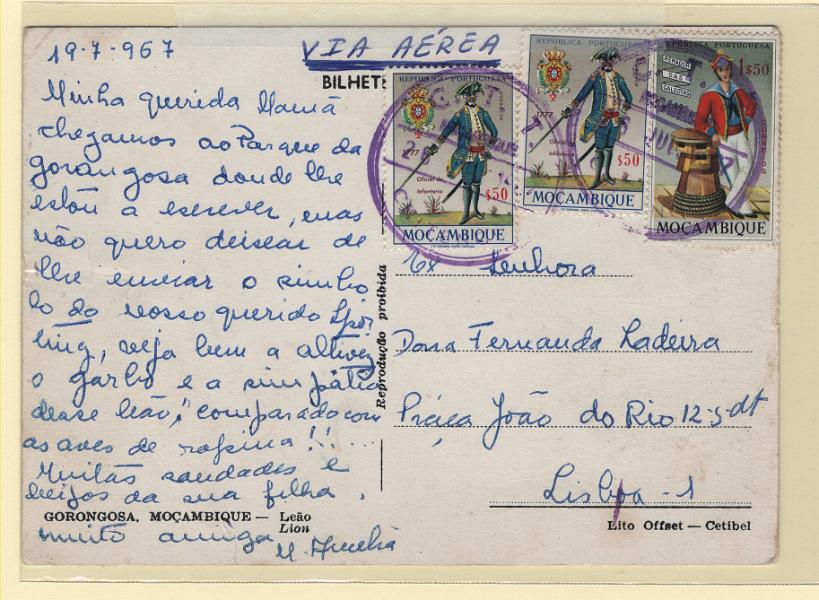 19-7-967
VIA AÉREA
BILHETE
Minha querida Mamã
chegamos ao Parque da
gorongosa donde lhe
estou a escrever, mas
não quero deixar de
lhe enviar o simbo
lo do nosso querido Spor
ting, veja bem a altivez
o garbo e a simpatia
desse leão, comparado com
as aves de rapina!!....
Muitas saudades e
beijos da sua filha
muito amiga
M. Amélia
GORONGOSA, MOÇAMBIQUE — Leão
Lion
Reprodução proibida
REPÚBLICA PORTUGUESA
1777
Oficial de
Infantaria
$50
MOÇAMBIQUE
REPÚBLICA PORTUGUESA
1777
Oficial de
Infantaria
$50
MOÇAMBIQUE
REPÚBLICA PORTUGUESA
1$50
REMADOR
DAS
GALEOTAS
MOÇAMBIQUE
Senhora
Dona Fernanda Ladeira
Praça João do Rio 12-5-dt
Lisboa-1
Lito Offset — Cetibel